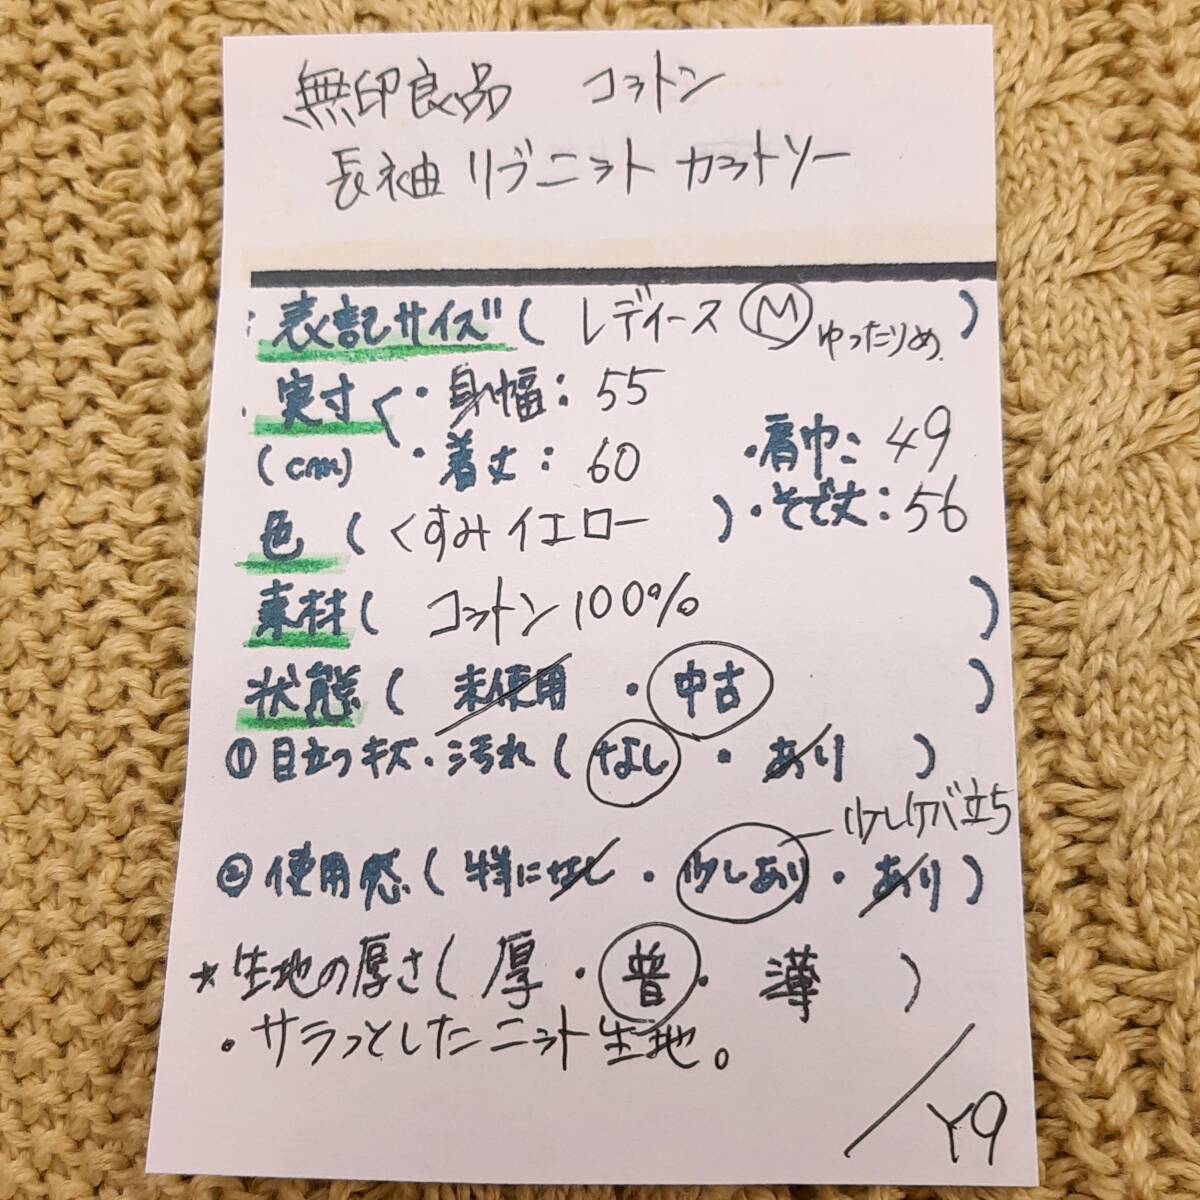 無印良品 コットン
長袖 リブニット カットソー
表記サイズ( レディース M ゆったりめ )
実寸 ・身幅：55
(cm) ・着丈：60 ・肩巾：49
色 ( くすみイエロー ) ・そで丈：56
素材( コットン100% )
状態( 未使用 ・ 中古 )
①目立つキズ・汚れ( なし ・ あり )
少しケバ立ち
②使用感( 特になし ・ 少しあり ・ あり )
★生地の厚さ( 厚 ・ 普 ・ 薄 )
・サラっとしたニット生地。
/Y9